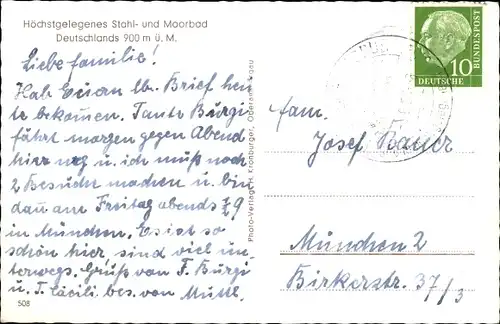 Höchstgelegenes Stahl- und Moorbad
Deutschlands 900 m ü. M.
Liebe Familie!
Hab Euern lb. Brief heu
te bekommen. Tante Burgi
fährt morgen gegen Abend
hier weg u. ich muß noch
2 Besuche machen u. bin
dañ am Freitag abends ½ 9
in München. Es ist so
schön hier, sind viel un
terwegs. Gruß von T. Burgi
u. T. Cäcili. bes. von Mutti.
508
Photo-Verlag H. Kronburger, Oberammergau
DEUTSCHE
BUNDESPOST
10
Fam.
Josef Bauer
München 2
Birkerstr. 37/3